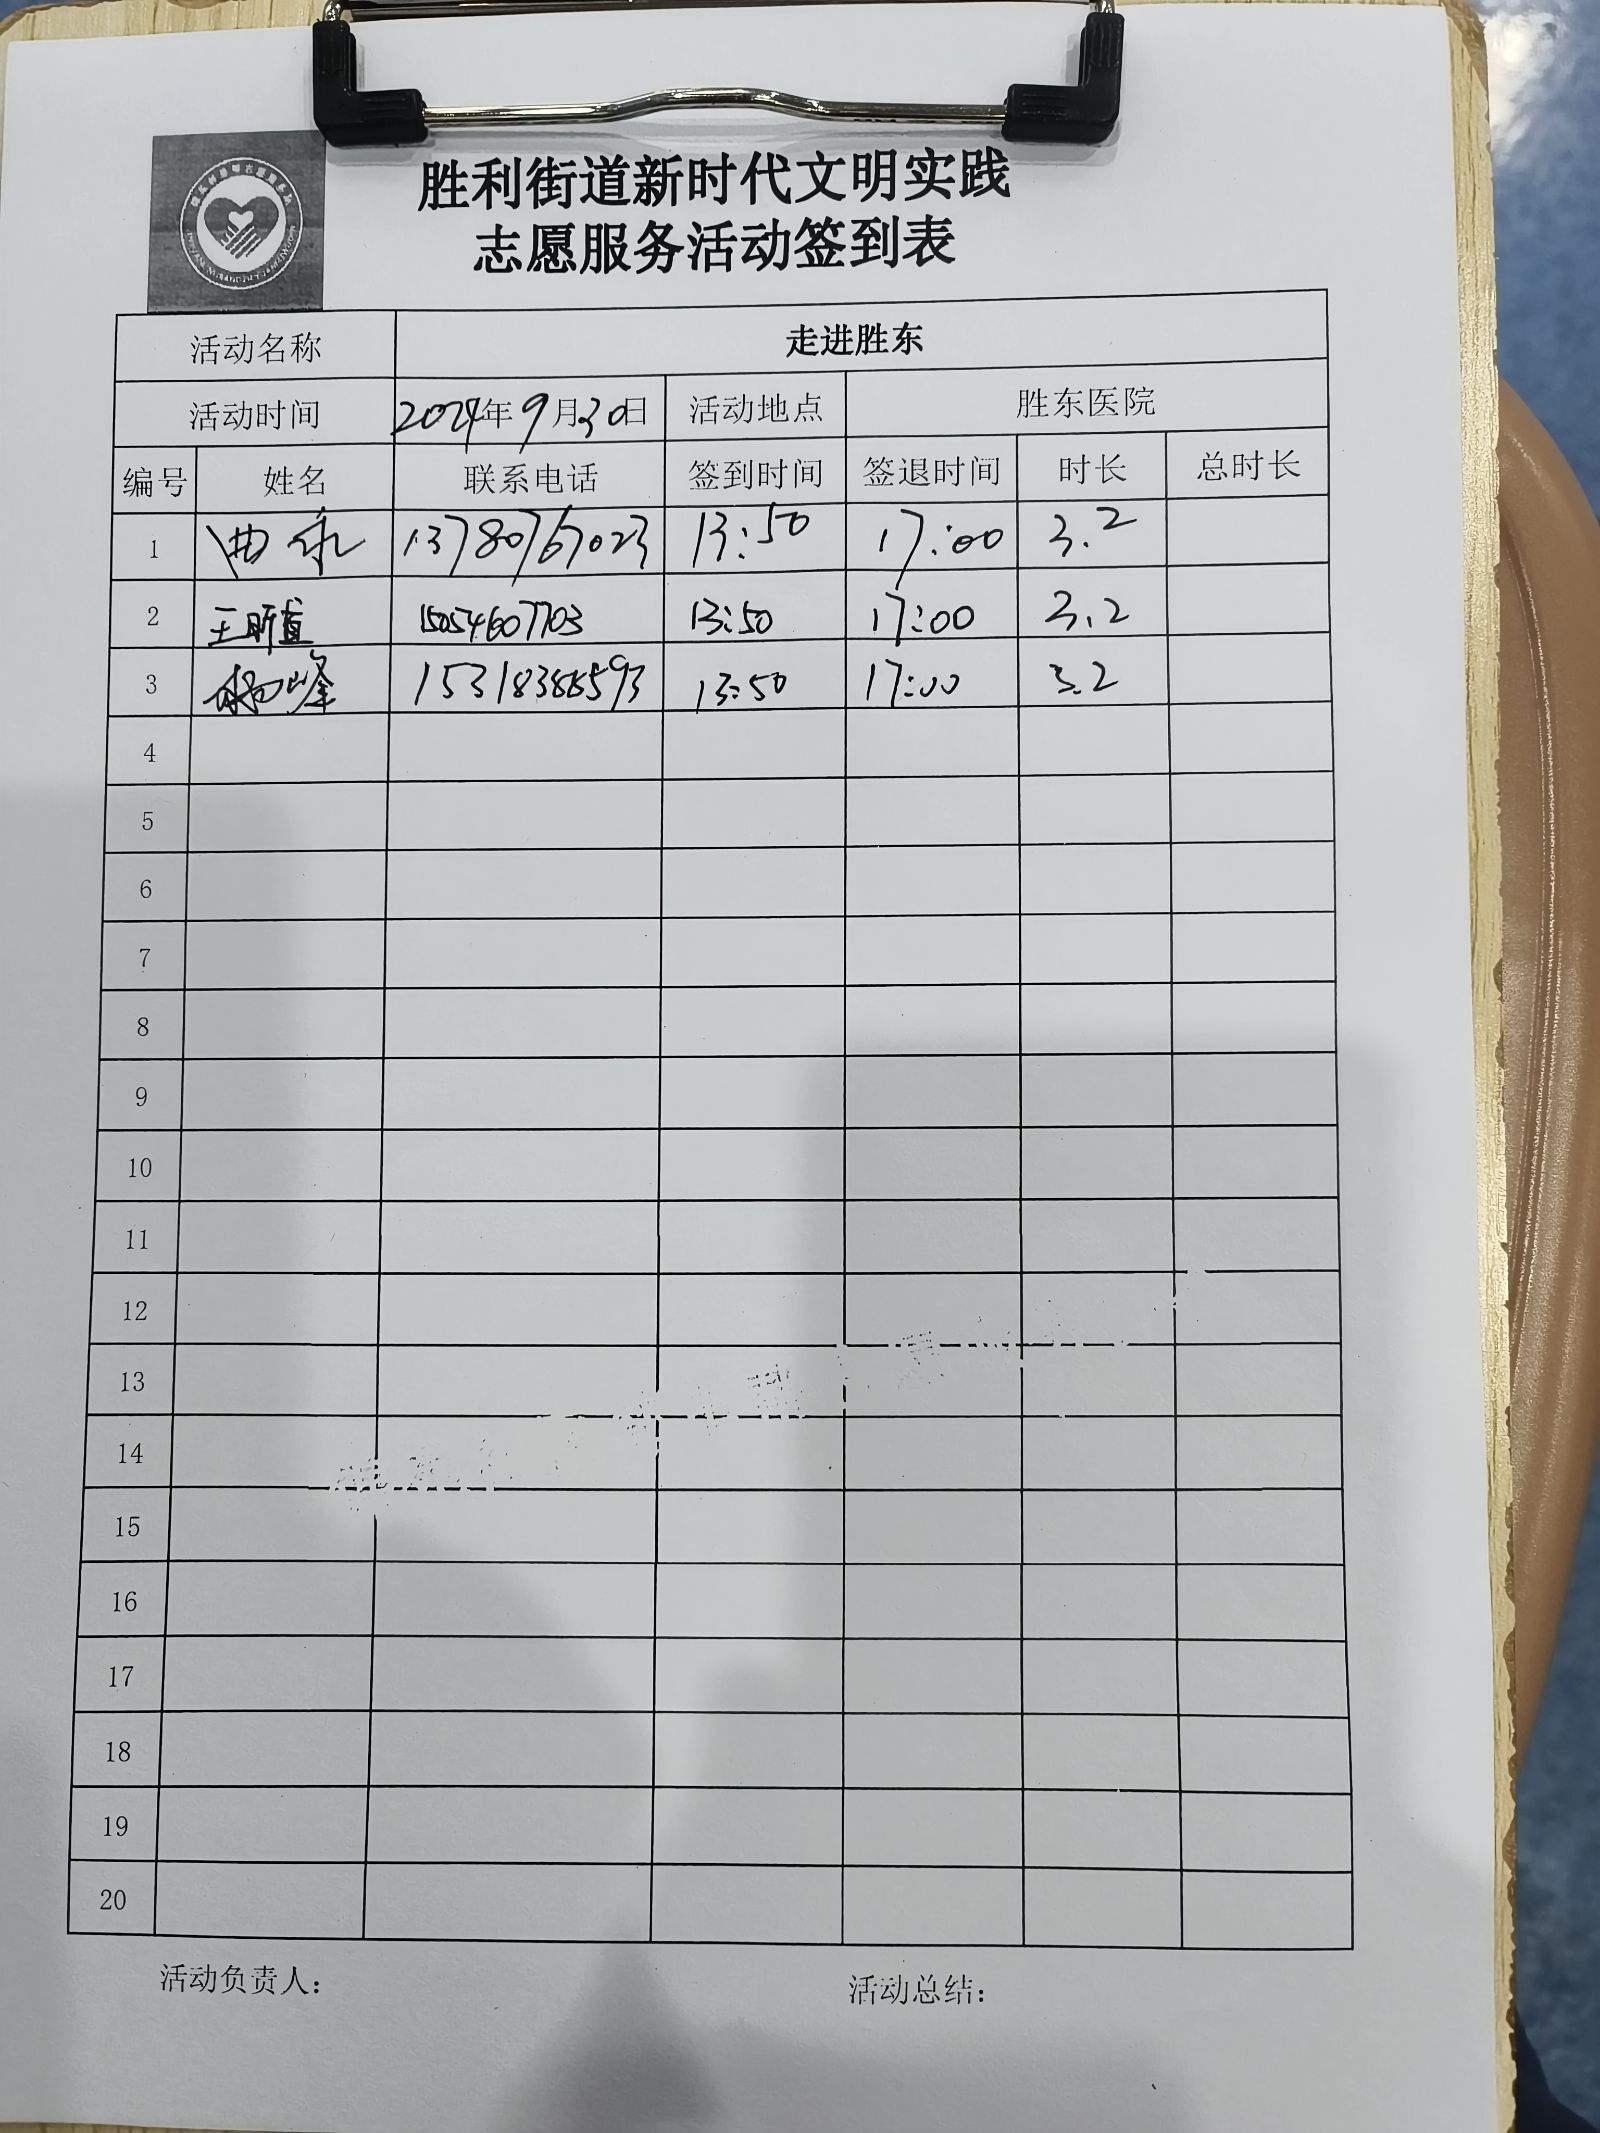 胜利街道新时代文明实践
志愿服务活动签到表
活动名称 走进胜东
活动时间 2024年9月30日 活动地点 胜东医院
编号 姓名 联系电话 签到时间 签退时间 时长 总时长
1 曲永 13780767023 13:50 17:00 3.2
2 王昕直 15054607703 13:50 17:00 3.2
3 杨峰 13:50 17:00 3.2
4
5
6
7
8
9
10
11
12
13
14
15
16
17
18
19
20
活动负责人： 活动总结：